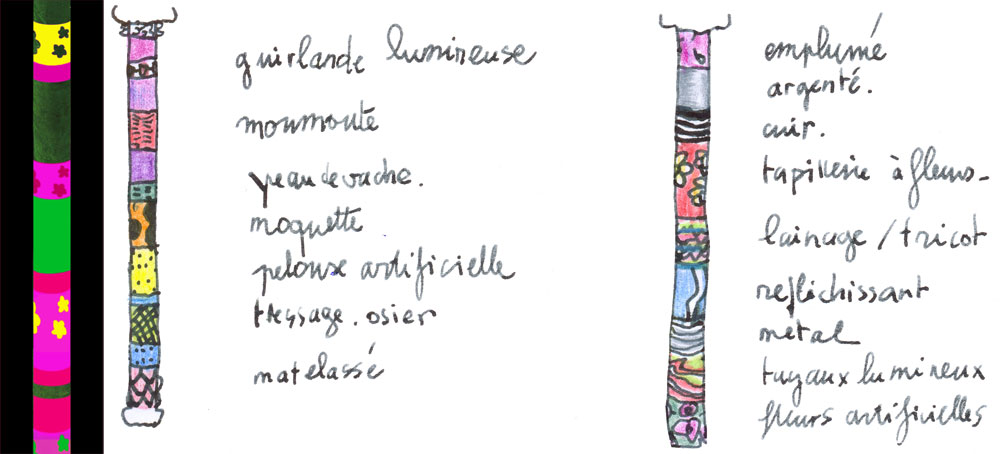 guirlande lumineuse
moumoute
peau de vache.
moquette
pelouse artificielle
tressage. osier
matelassé
emplumé
argenté.
cuir.
tapisserie à fleurs
lainage / tricot
refléchissant
métal
tuyaux lumineux
fleurs artificielles